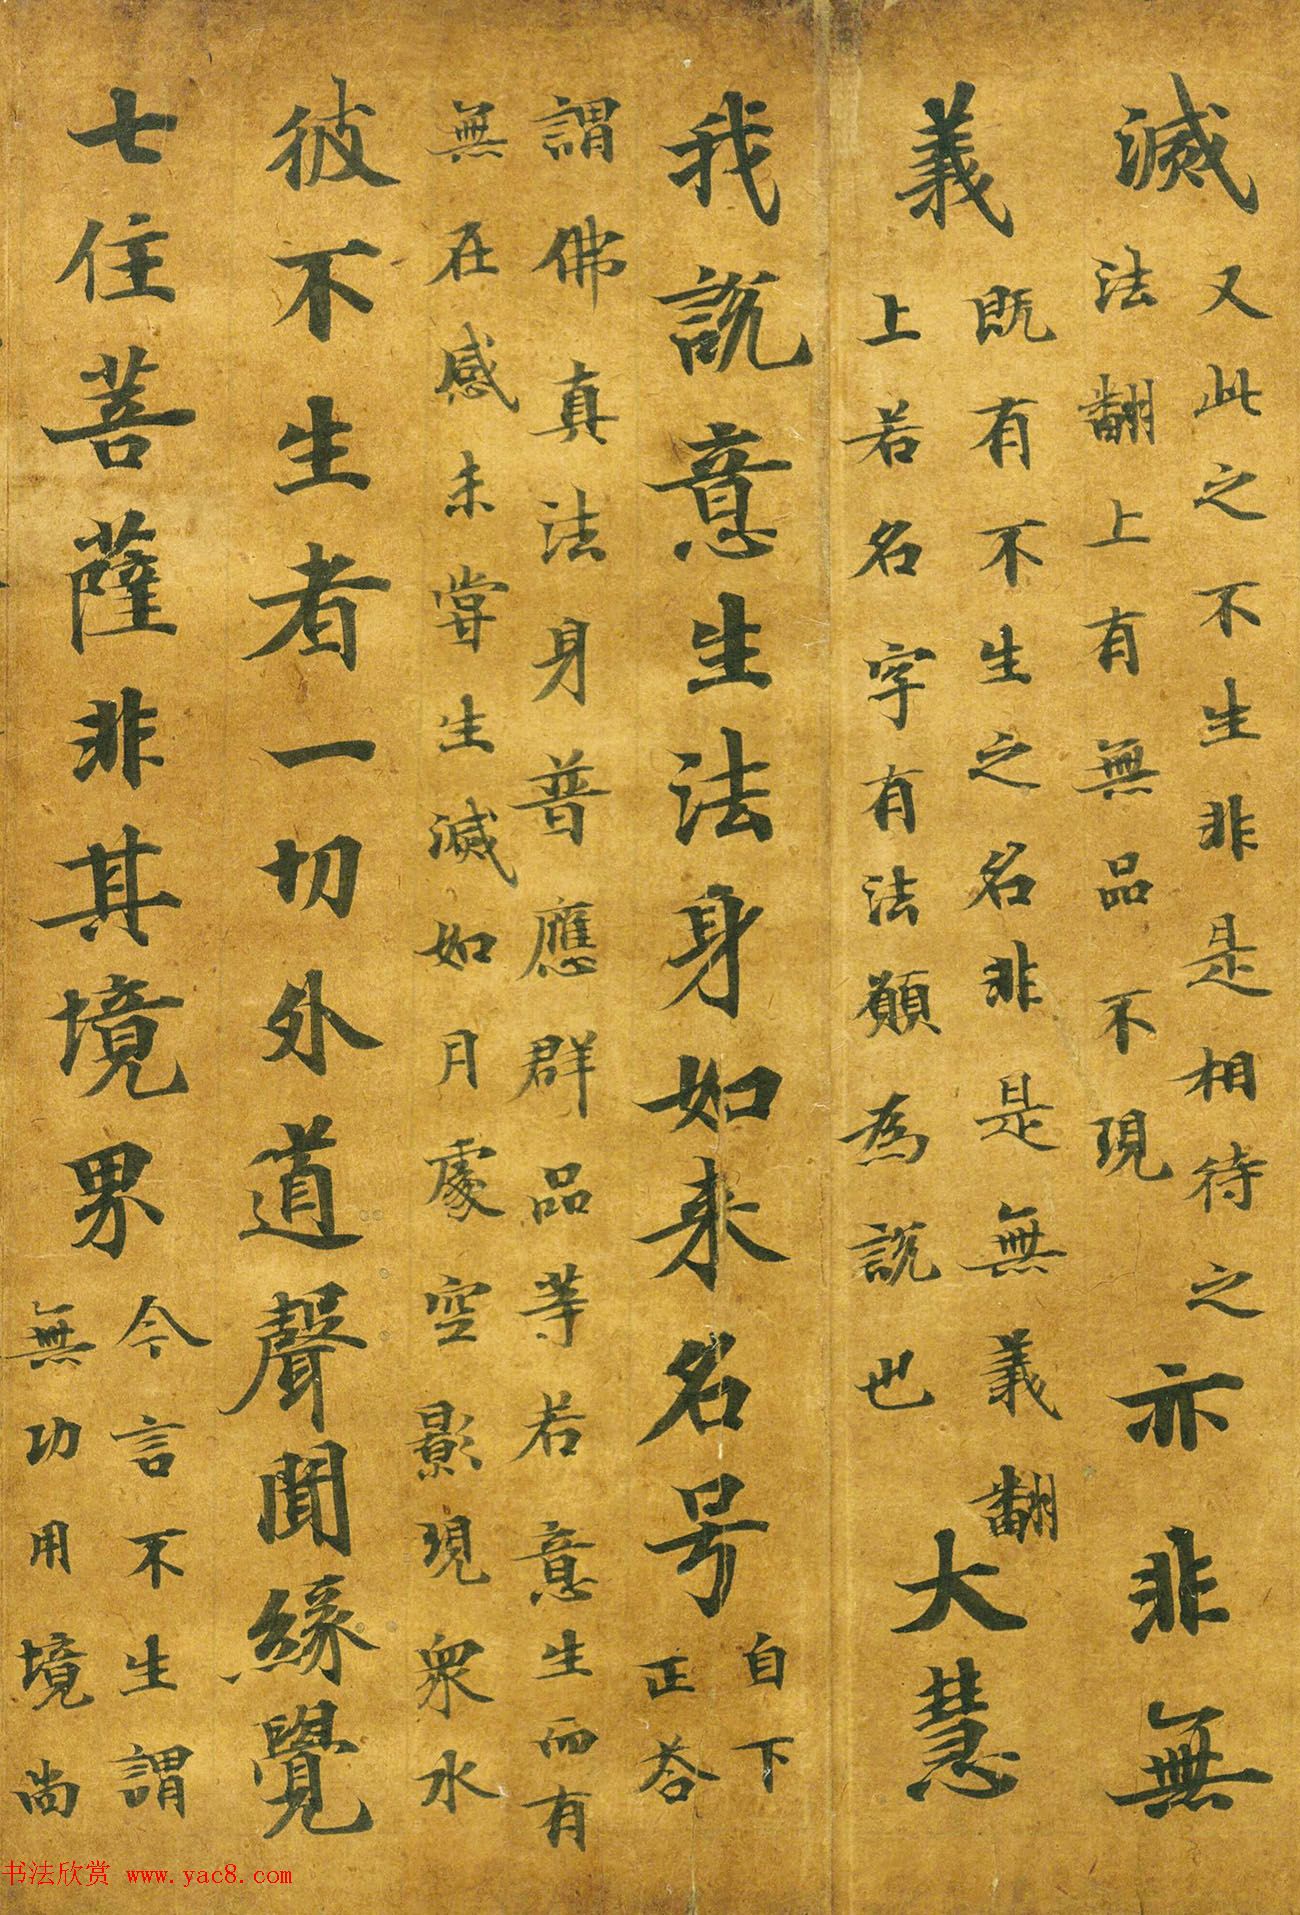 滅
又此之不生非是相待之
法翻上有無品不現
亦非無
義
既有不生之名非是無義翻
上若名字有法願為說也
大慧
我說意生法身如来名号
自下
正荅
謂佛真法身普應群品等若意生而有
無在感未甞生滅如月處空影現衆水
彼不生者一切外道聲聞緣覺
七住菩薩非其境界
今言不生謂
無功用境尚
书法欣赏 www.yac8.com